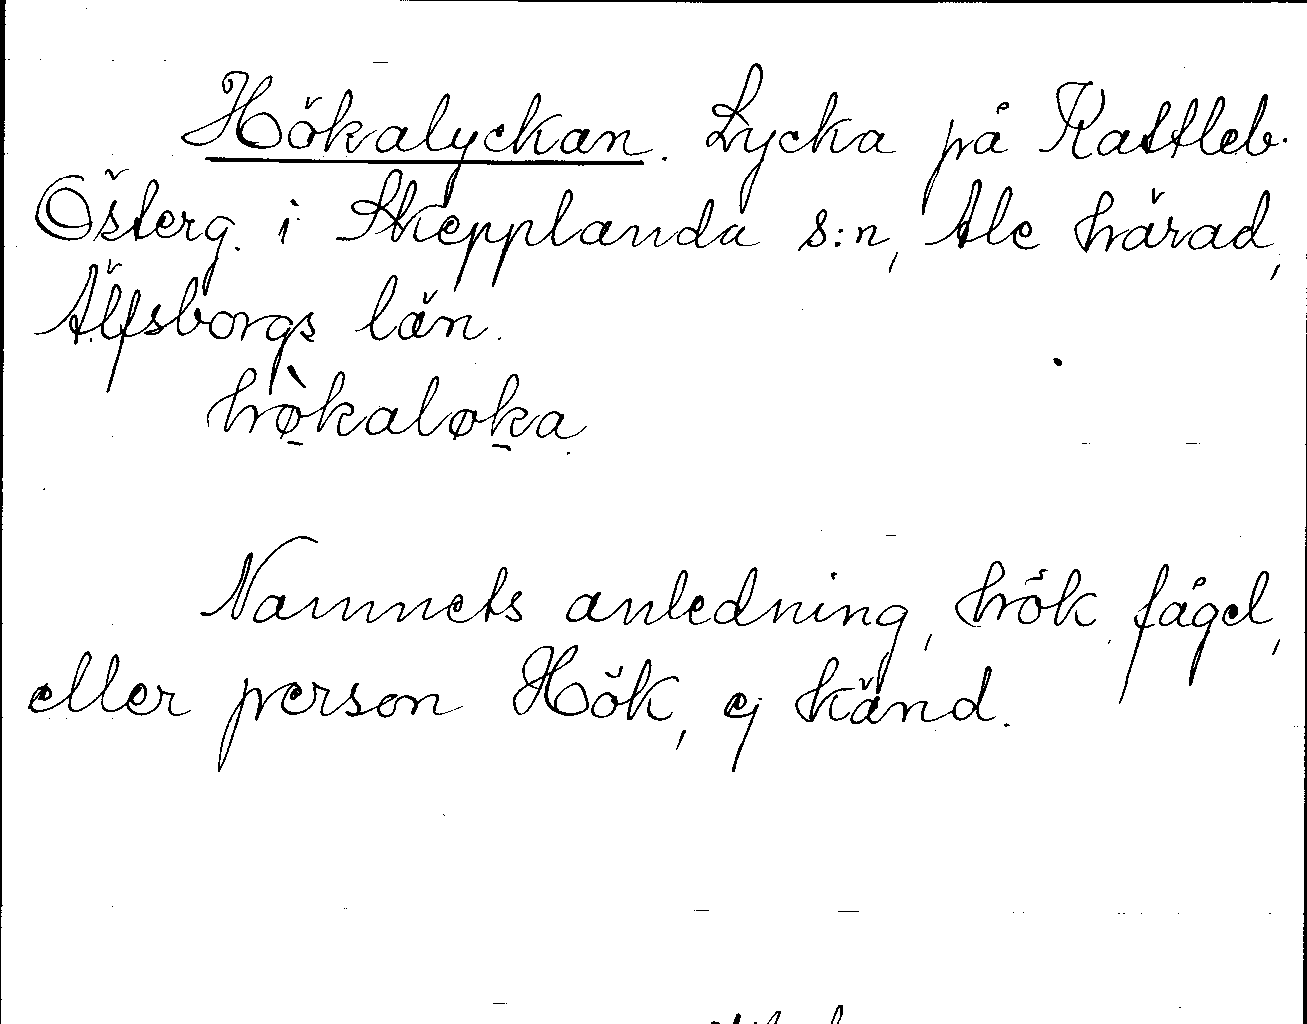 Hökalyckan. Lycka på Kattleb.
Österg. i Skepplanda s:n, Ale härad,
Älfsborgs län.
hø̀kaløka
Namnets anledning, hök, fågel,
eller person Hök, ej känd.